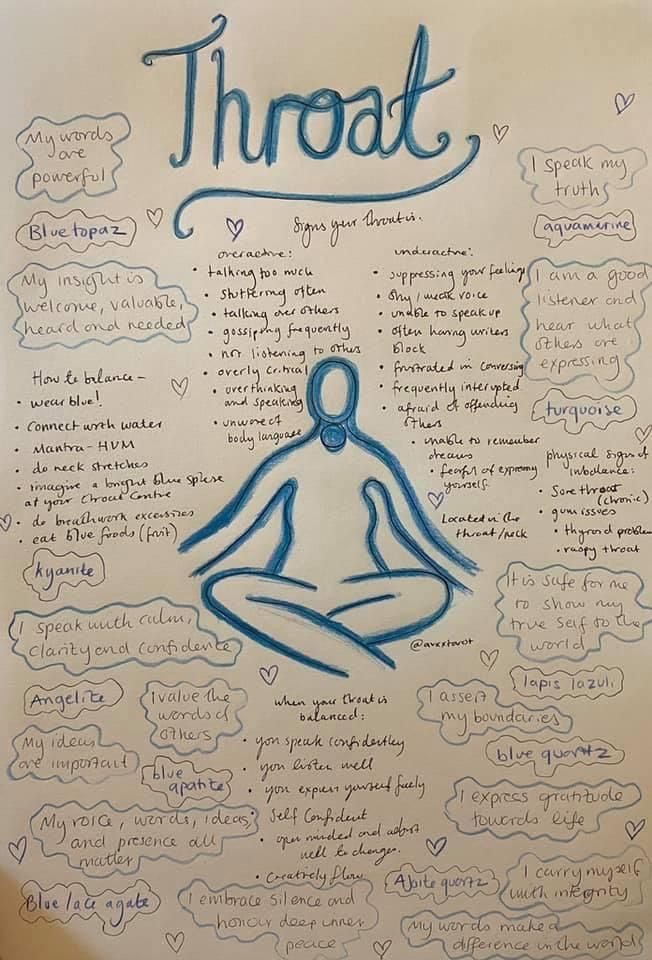 Throat
My words
are
powerful
I speak my
truth
Blue topaz
aquamarine
My insight is
welcome, valuable,
heard and needed
I am a good
listener and
hear what
others are
expressing
turquoise
Signs your throat is:
overactive:
• talking too much
• stuttering often
• talking over others
• gossiping frequently
• not listening to others
• overly critical
• overthinking
and speaking
• unware of
body language
underactive:
• suppressing your feelings
• shy / weak voice
• unable to speak up
• often having writers
block
• frustrated in conversing
• frequently interupted
• afraid of offending
others
• unable to remember
dreams
• fearful of expressing
yourself.
How to balance –
• wear blue!
• connect with water
• Mantra – HUM
• do neck stretches
• imagine a bright blue sphere
at your throat centre
• do breathwork excersizes
• eat blue foods (fruit)
physical signs of
imbalance:
• Sore throat
(chronic)
• gum issues
• thyroid problem
• raspy throat
Located in the
throat/neck
kyanite
I speak with calm,
clarity and confidence
It is safe for me
to show my
true self to the
world
@avxxtarot
Angelite
I value the
words of
others
lapis lazuli
I assert
my boundaries
My ideas
are important
blue
apatite
blue quartz
when your throat is
balanced:
• you speak confidently
• you listen well
• you express yourself freely
• Self Confident
• open minded and adjust
well to changes.
• Creatively flow
I express gratitude
towards life
My voice, words, ideas,
and presence all
matter
Blue lace agate
I embrace silence and
honour deep inner
peace
Ajoite quartz
I carry myself
with integrity
My words make a
difference in the world